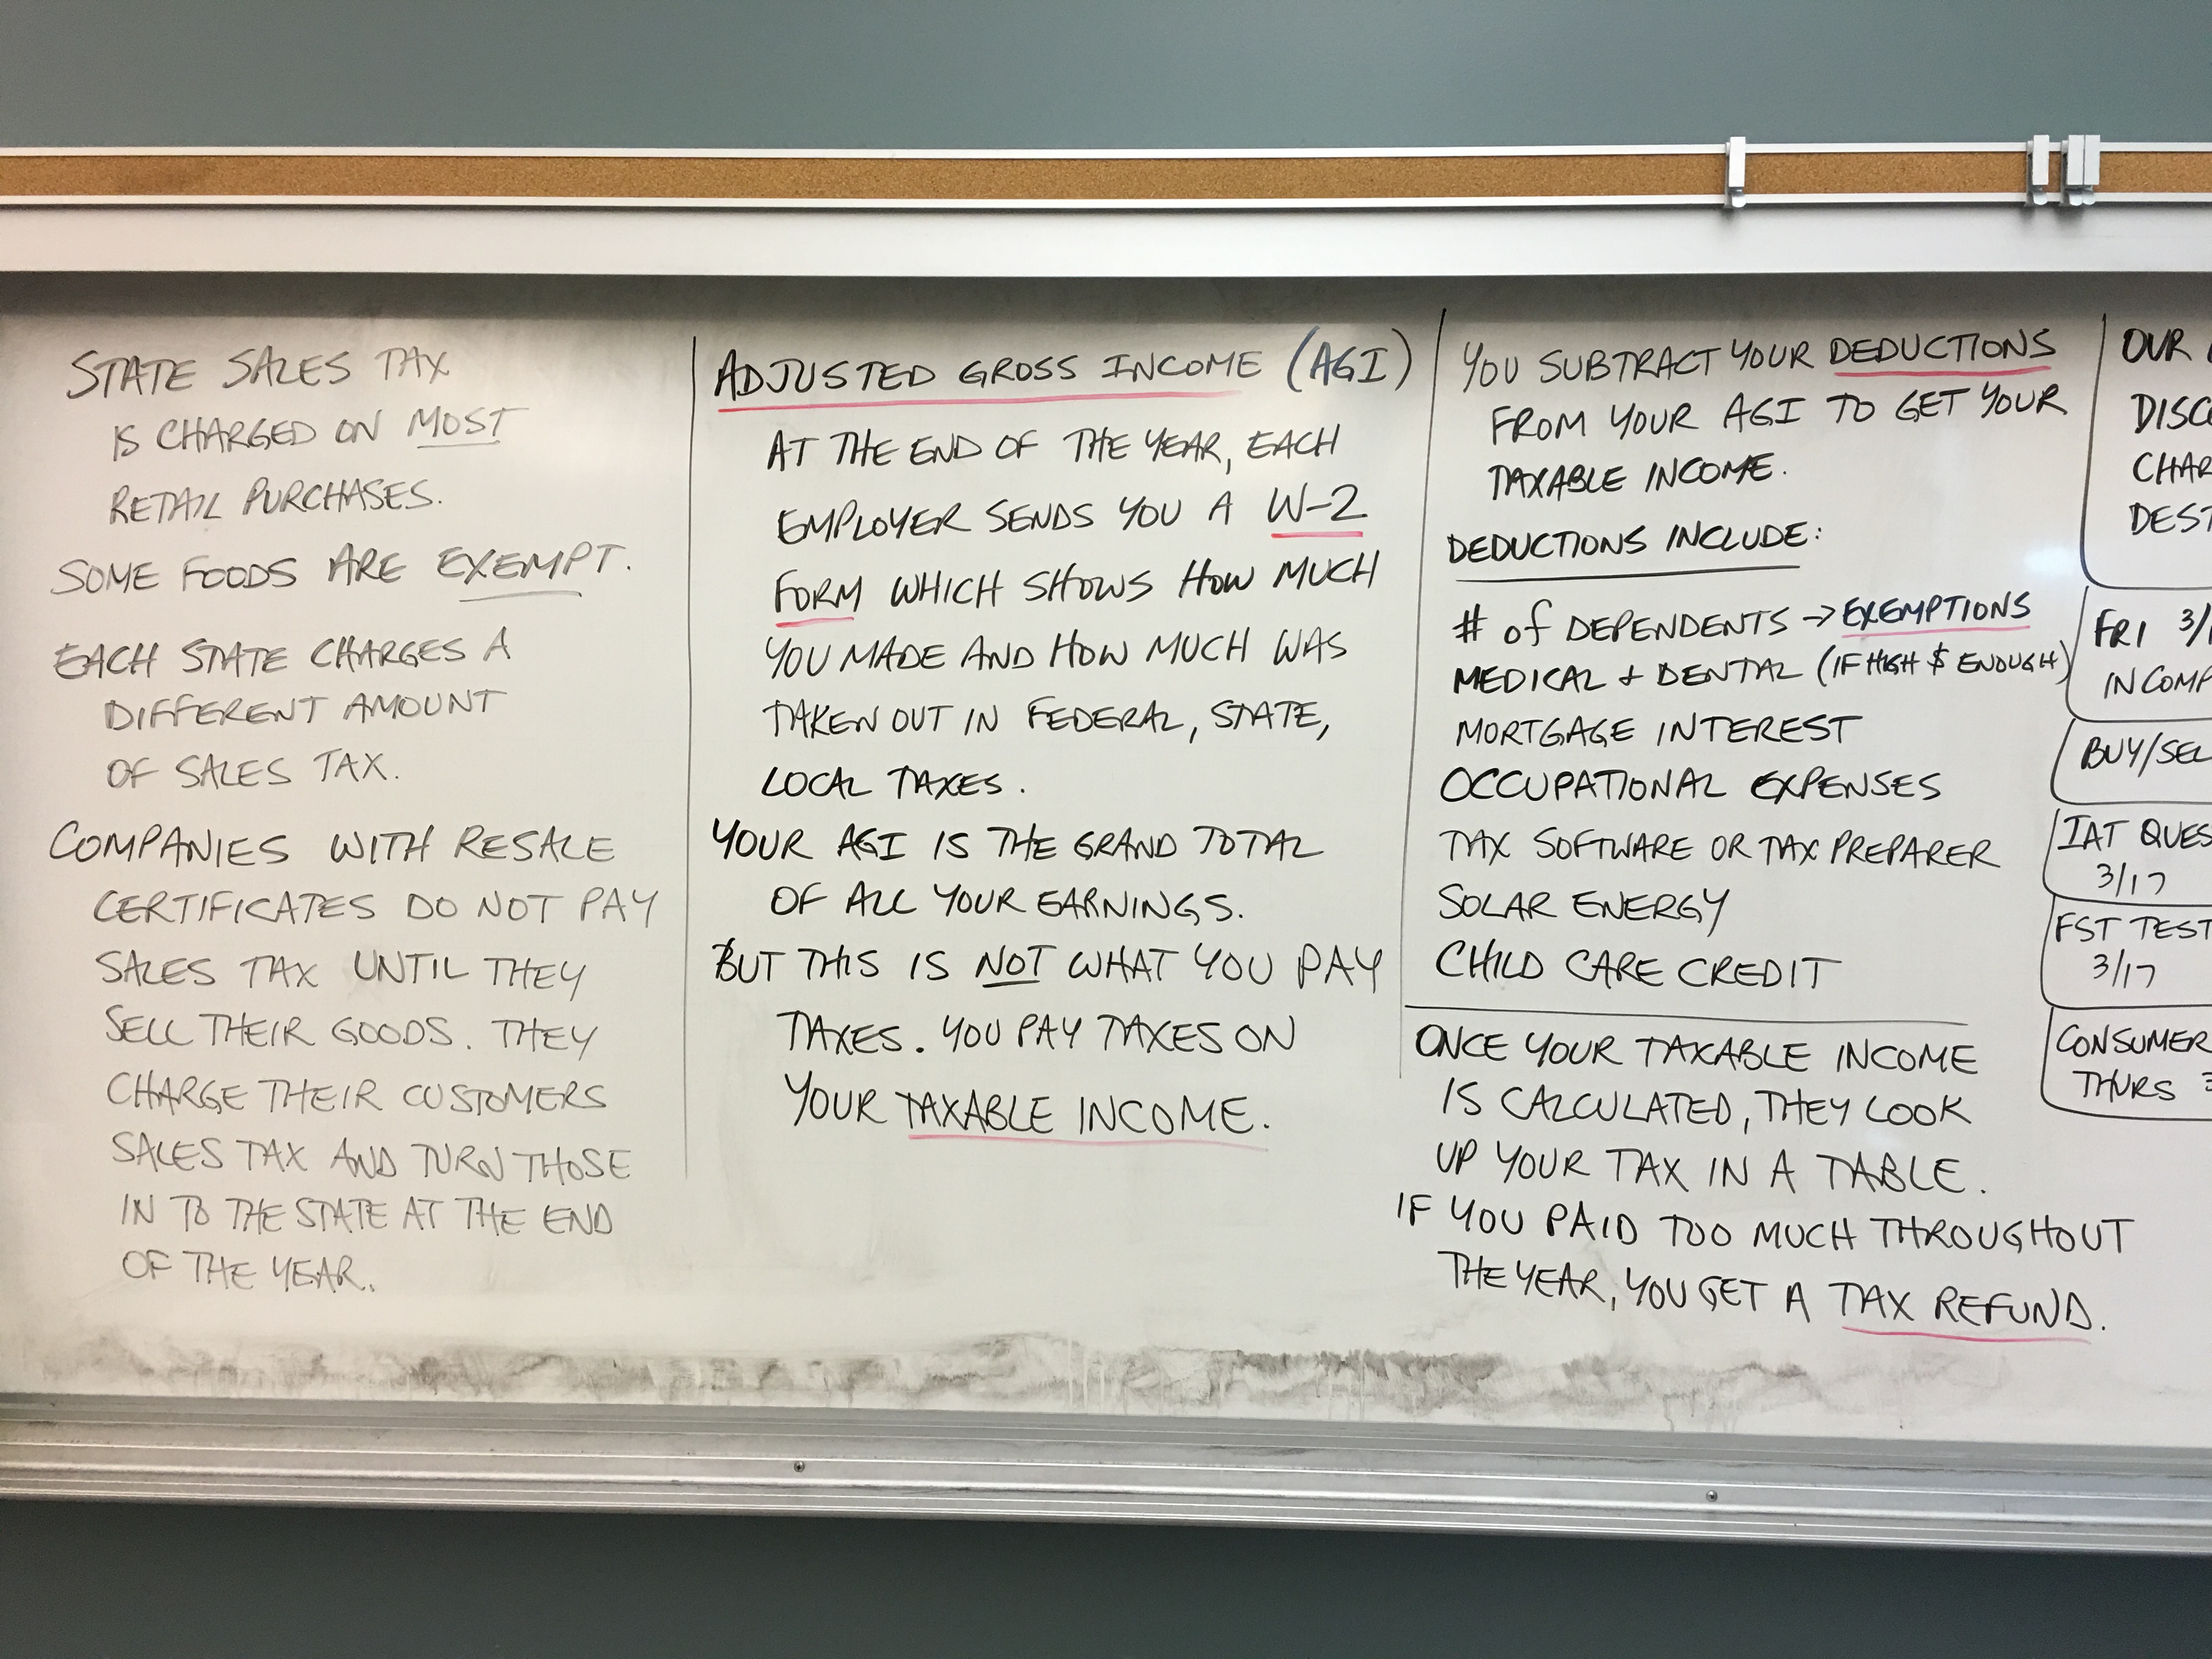 STATE SALES TAX
IS CHARGED ON MOST
RETAIL PURCHASES.
SOME FOODS ARE EXEMPT.
EACH STATE CHARGES A
DIFFERENT AMOUNT
OF SALES TAX.
COMPANIES WITH RESALE
CERTIFICATES DO NOT PAY
SALES TAX UNTIL THEY
SELL THEIR GOODS. THEY
CHARGE THEIR CUSTOMERS
SALES TAX AND TURN THOSE
IN TO THE STATE AT THE END
OF THE YEAR.
ADJUSTED GROSS INCOME (AGI)
AT THE END OF THE YEAR, EACH
EMPLOYER SENDS YOU A W-2
FORM WHICH SHOWS HOW MUCH
YOU MADE AND HOW MUCH WAS
TAKEN OUT IN FEDERAL, STATE,
LOCAL TAXES.
YOUR AGI IS THE GRAND TOTAL
OF ALL YOUR EARNINGS.
BUT THIS IS NOT WHAT YOU PAY
TAXES. YOU PAY TAXES ON
YOUR TAXABLE INCOME.
YOU SUBTRACT YOUR DEDUCTIONS
FROM YOUR AGI TO GET YOUR
TAXABLE INCOME.
DEDUCTIONS INCLUDE:
# of DEPENDENTS → EXEMPTIONS
MEDICAL + DENTAL (IF HIGH $ ENOUGH)
MORTGAGE INTEREST
OCCUPATIONAL EXPENSES
TAX SOFTWARE OR TAX PREPARER
SOLAR ENERGY
CHILD CARE CREDIT
ONCE YOUR TAXABLE INCOME
IS CALCULATED, THEY LOOK
UP YOUR TAX IN A TABLE.
IF YOU PAID TOO MUCH THROUGHOUT
THE YEAR, YOU GET A TAX REFUND.
OUR
FRI
BUY/
IAT
3/17
FST TEST
3/17
CONSUMER
THURS